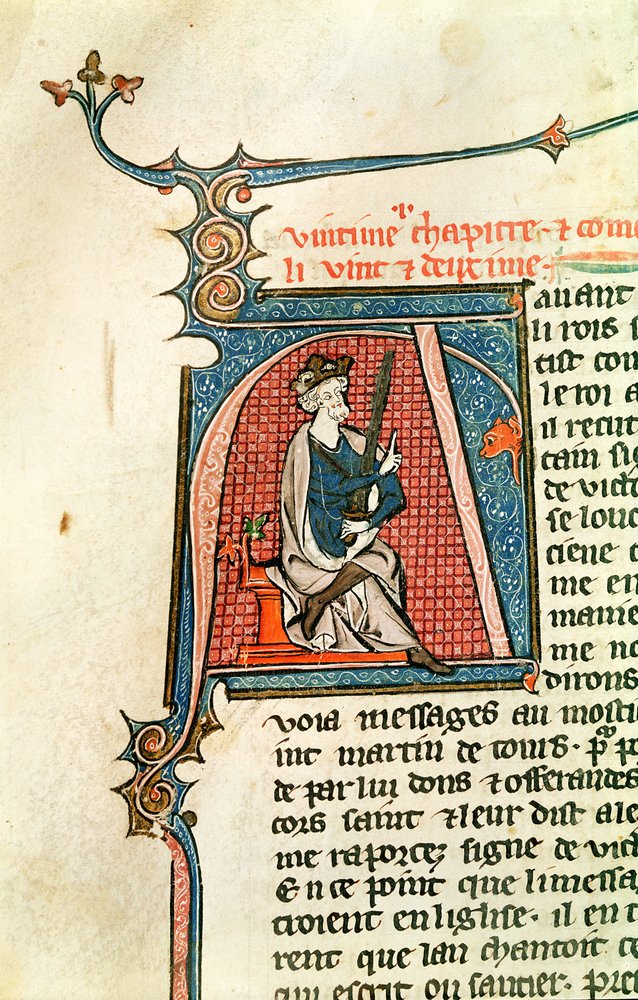 vintime chapitre · ⁊ come
li vint ⁊ deuxime ·
Auant
li rois
tist com
le roi a
il recut
tain sig
de vict
se loue
ciene c
me en
manie
me no
dirons
voia messages au mosti
int martin de tours · p p
de par lui dons ⁊ offerandes
cors saint ⁊ leur dist ale
me raportez signe de vic
En ce point que li messa
troient en liglise · il en t
rent que lan chantoit ce
qui escrit ou sautier · prec